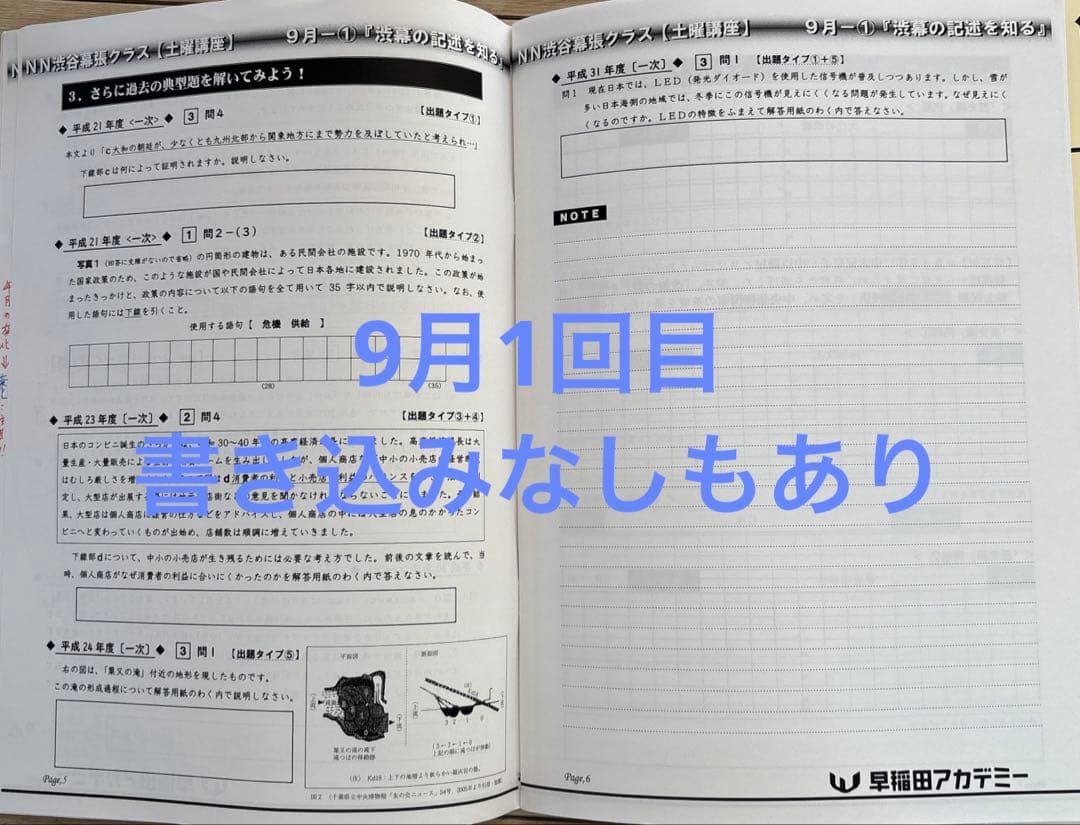 NN渋谷幕張クラス【土曜講座】 9月－①『渋幕の記述を知る』
3．さらに過去の典型題を解いてみよう！
◆ 平成21年度〈一次〉◆ 3 問4 【出題タイプ①】
本文より「c大和の朝廷が、少なくとも九州北部から関東地方にまで勢力を及ぼしていたと考えられ…」
下線部cは何によって証明されますか。説明しなさい。
◆ 平成21年度〈一次〉◆ 1 問2－(3) 【出題タイプ②】
写真1（回答に支障がないので省略）の円筒形の建物は、ある民間会社の施設です。1970年代から始まっ
た国家政策のため、このような施設が国や民間会社によって日本各地に建設されました。この政策が始
まったきっかけと、政策の内容について以下の語句を全て用いて35字以内で説明しなさい。なお、使
用した語句には下線を引くこと。
使用する語句【 危機 供給 】
(28) (35)
◆ 平成23年度〔一次〕◆ 2 問4 【出題タイプ③＋④】
日本のコンビニ誕生の
和30～40年
長は大
量生産・大量販売による
ームを生み出し
個人商店
中小の小売店
はむしろ厳しさを増
d消費者の利
と小売店
定し、大型店が出展す
店街な
意見を聞かなけれ
果、大型店は個人商店に経営の仕方などをアドバイスし、個人商店の中には大型店の息のかかったコン
ビニへと変わっていくものが出始め、店舗数は順調に増えていきました。
下線部dについて、中小の小売店が生き残るためには必要な考え方でした。前後の文章を読んで、当
時、個人商店がなぜ消費者の利益に合いにくかったのかを解答用紙のわく内で答えなさい。
◆ 平成24年度〔一次〕◆ 3 問1 【出題タイプ⑤】
右の図は、「栗又の滝」付近の地形を現したものです。
この滝の形成過程について解答用紙のわく内で説明しなさい。
平面図 断面図
(上流)
(下流)
3 2 1 0
栗又の滝の滝下
滝つぼの移動跡
(3←2←1←0
上記の順に滝つぼが移動)
(注) Kd18：上下の地層より軟らかい凝灰岩の層。
図2 (千葉県立中央博物館「友の会ニュース」54号、2005年より引用・加筆)
Page,5
NN渋谷幕張クラス【土曜講座】 9月－①『渋幕の記述を知る』
◆ 平成31年度〔一次〕◆ 3 問1 【出題タイプ①＋⑤】
問1 現在日本では、LED（発光ダイオード）を使用した信号機が普及しつつあります。しかし、雪が
多い日本海側の地域では、冬季にこの信号機が見えにくくなる問題が発生しています。なぜ見えにく
くなるのですか。LEDの特徴をふまえて解答用紙のわく内で答えなさい。
NOTE
Page,6
早稲田アカデミー
9月1回目
書き込みなしもあり